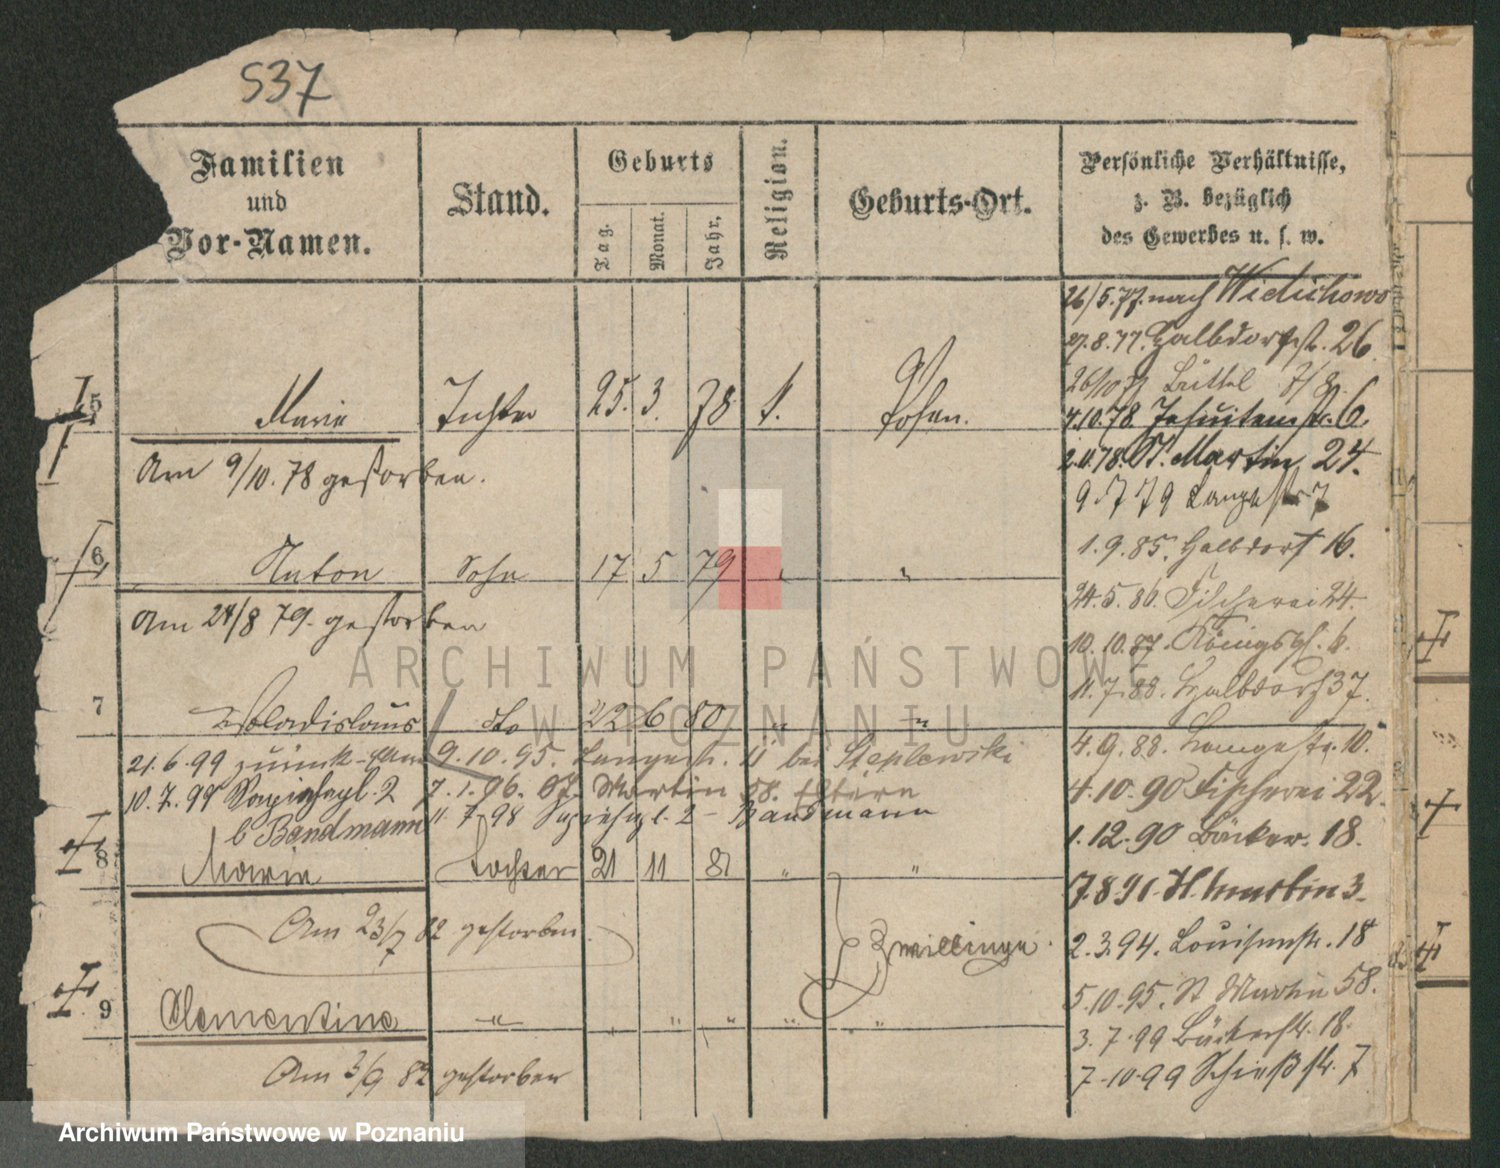 537
Familien
und
Vor-Namen.
Stand.
Geburts
Tag.
Monat.
Jahr.
Religion.
Geburts-Ort.
Persönliche Verhältnisse,
z. B. bezüglich
des Gewerbes u. s. w.
5 Marie Tochter 25. 3. 78 k. Posen.
Am 9/10. 78 gestorben.
6 Anton Sohn 17 5 79 " "
Am 24/8 79. gestorben
7 Wladislaus dto 22 6 80 " "
21.6.99 zurück 9.10.95. Langestr. 11 bei Steplewski
10.7.99 Sapiehapl. 2 7.1.96. St. Martin 58. Eltern
b Bandmann 11.7.98 Sapiehapl. 2 - Bandmann
8 Marie Tochter 21 11 81 " "
Am 23/7 82 gestorben.
Zwillinge.
9 Clementine " " " " " "
Am 3/9 82 gestorben
26/5.77. nach
27.8.77. Halbdorfstr. 26
26/10 Büttel 7/8.
7.10.78. Jesuitenstr. 6.
78. St. Martin 24.
9 79 Langestr 7
1.9.85. Halbdorf 16.
24.5.86. Fischerei 24.
10.10.87. Königspl. 6.
11.7.88. Halbdorf 37.
4.9.88. Langestr. 10.
4.10.90 Fischerei 22.
1.12.90 Bäcker. 18.
7.8.91. St. Martin 3.
2.3.94. Louisenstr. 18
5.10.95. St Martin 58.
3.7.99 Bäckerstr. 18.
7.10.99 Schießstr. 7
ARCHIWUM PAŃSTWOWE
W POZNANIU
Archiwum Państwowe w Poznaniu